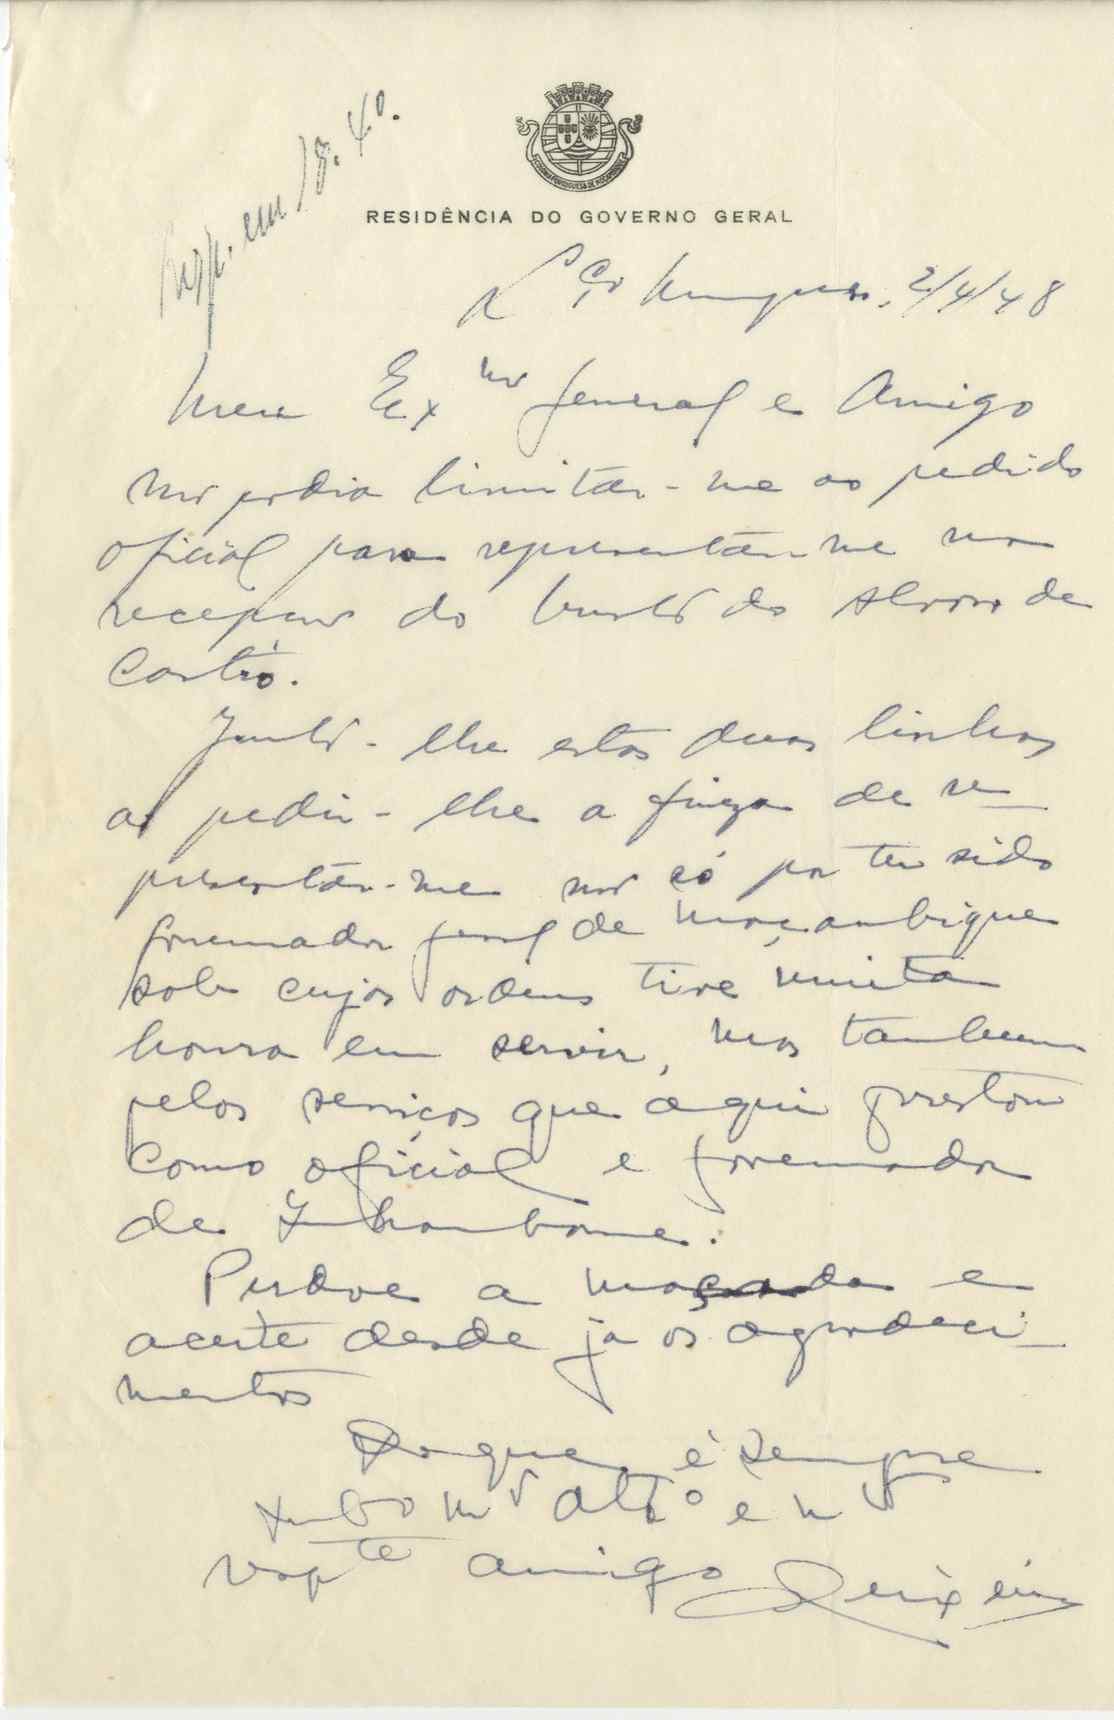 COLONIA PORTUGUESA DE MOÇAMBIQUE
RESIDÊNCIA DO GOVERNO GERAL
Resp. em 18.4.º
L.ço Marques, 2/4/48
Meu Exmo General e Amigo
Não podia limitar-me ao pedido
oficial para representar-me na
recepção do busto do Alvaro de
Castro.
Junto-lhe estas duas linhas
a pedir-lhe a fineza de re-
presentar-me não só por ter sido
governador geral de Moçambique
sob cujas ordens tive muita
honra em servir, mas tambem
pelos serviços que aqui prestou
como oficial e governador
de Inhambane.
Perdoe a maçada e
aceite desde já os agradeci-
mentos
Do que é sempre
subo mto atto e mto
resp te amigo Teixeira